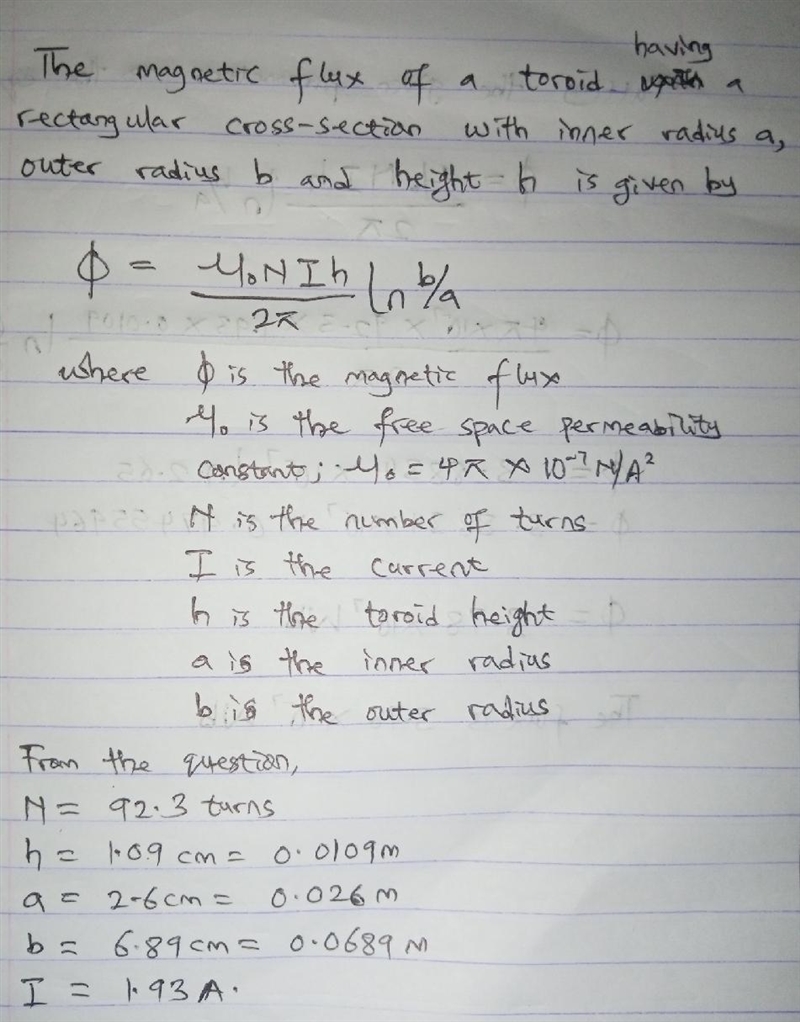 having
The magnetic flux of a toroid a
rectangular cross-section with inner radius a,
outer radius b and height h is given by
ϕ = μ₀NIh/2π ln b/a
where ϕ is the magnetic flux
μ₀ is the free space permeability
constant; μ₀ = 4π × 10⁻⁷ N/A²
N is the number of turns
I is the current
h is the toroid height
a is the inner radius
b is the outer radius
From the question,
N = 92.3 turns
h = 1.09 cm = 0.0109m
a = 2.6cm = 0.026 m
b = 6.89cm = 0.0689 m
I = 1.93 A.